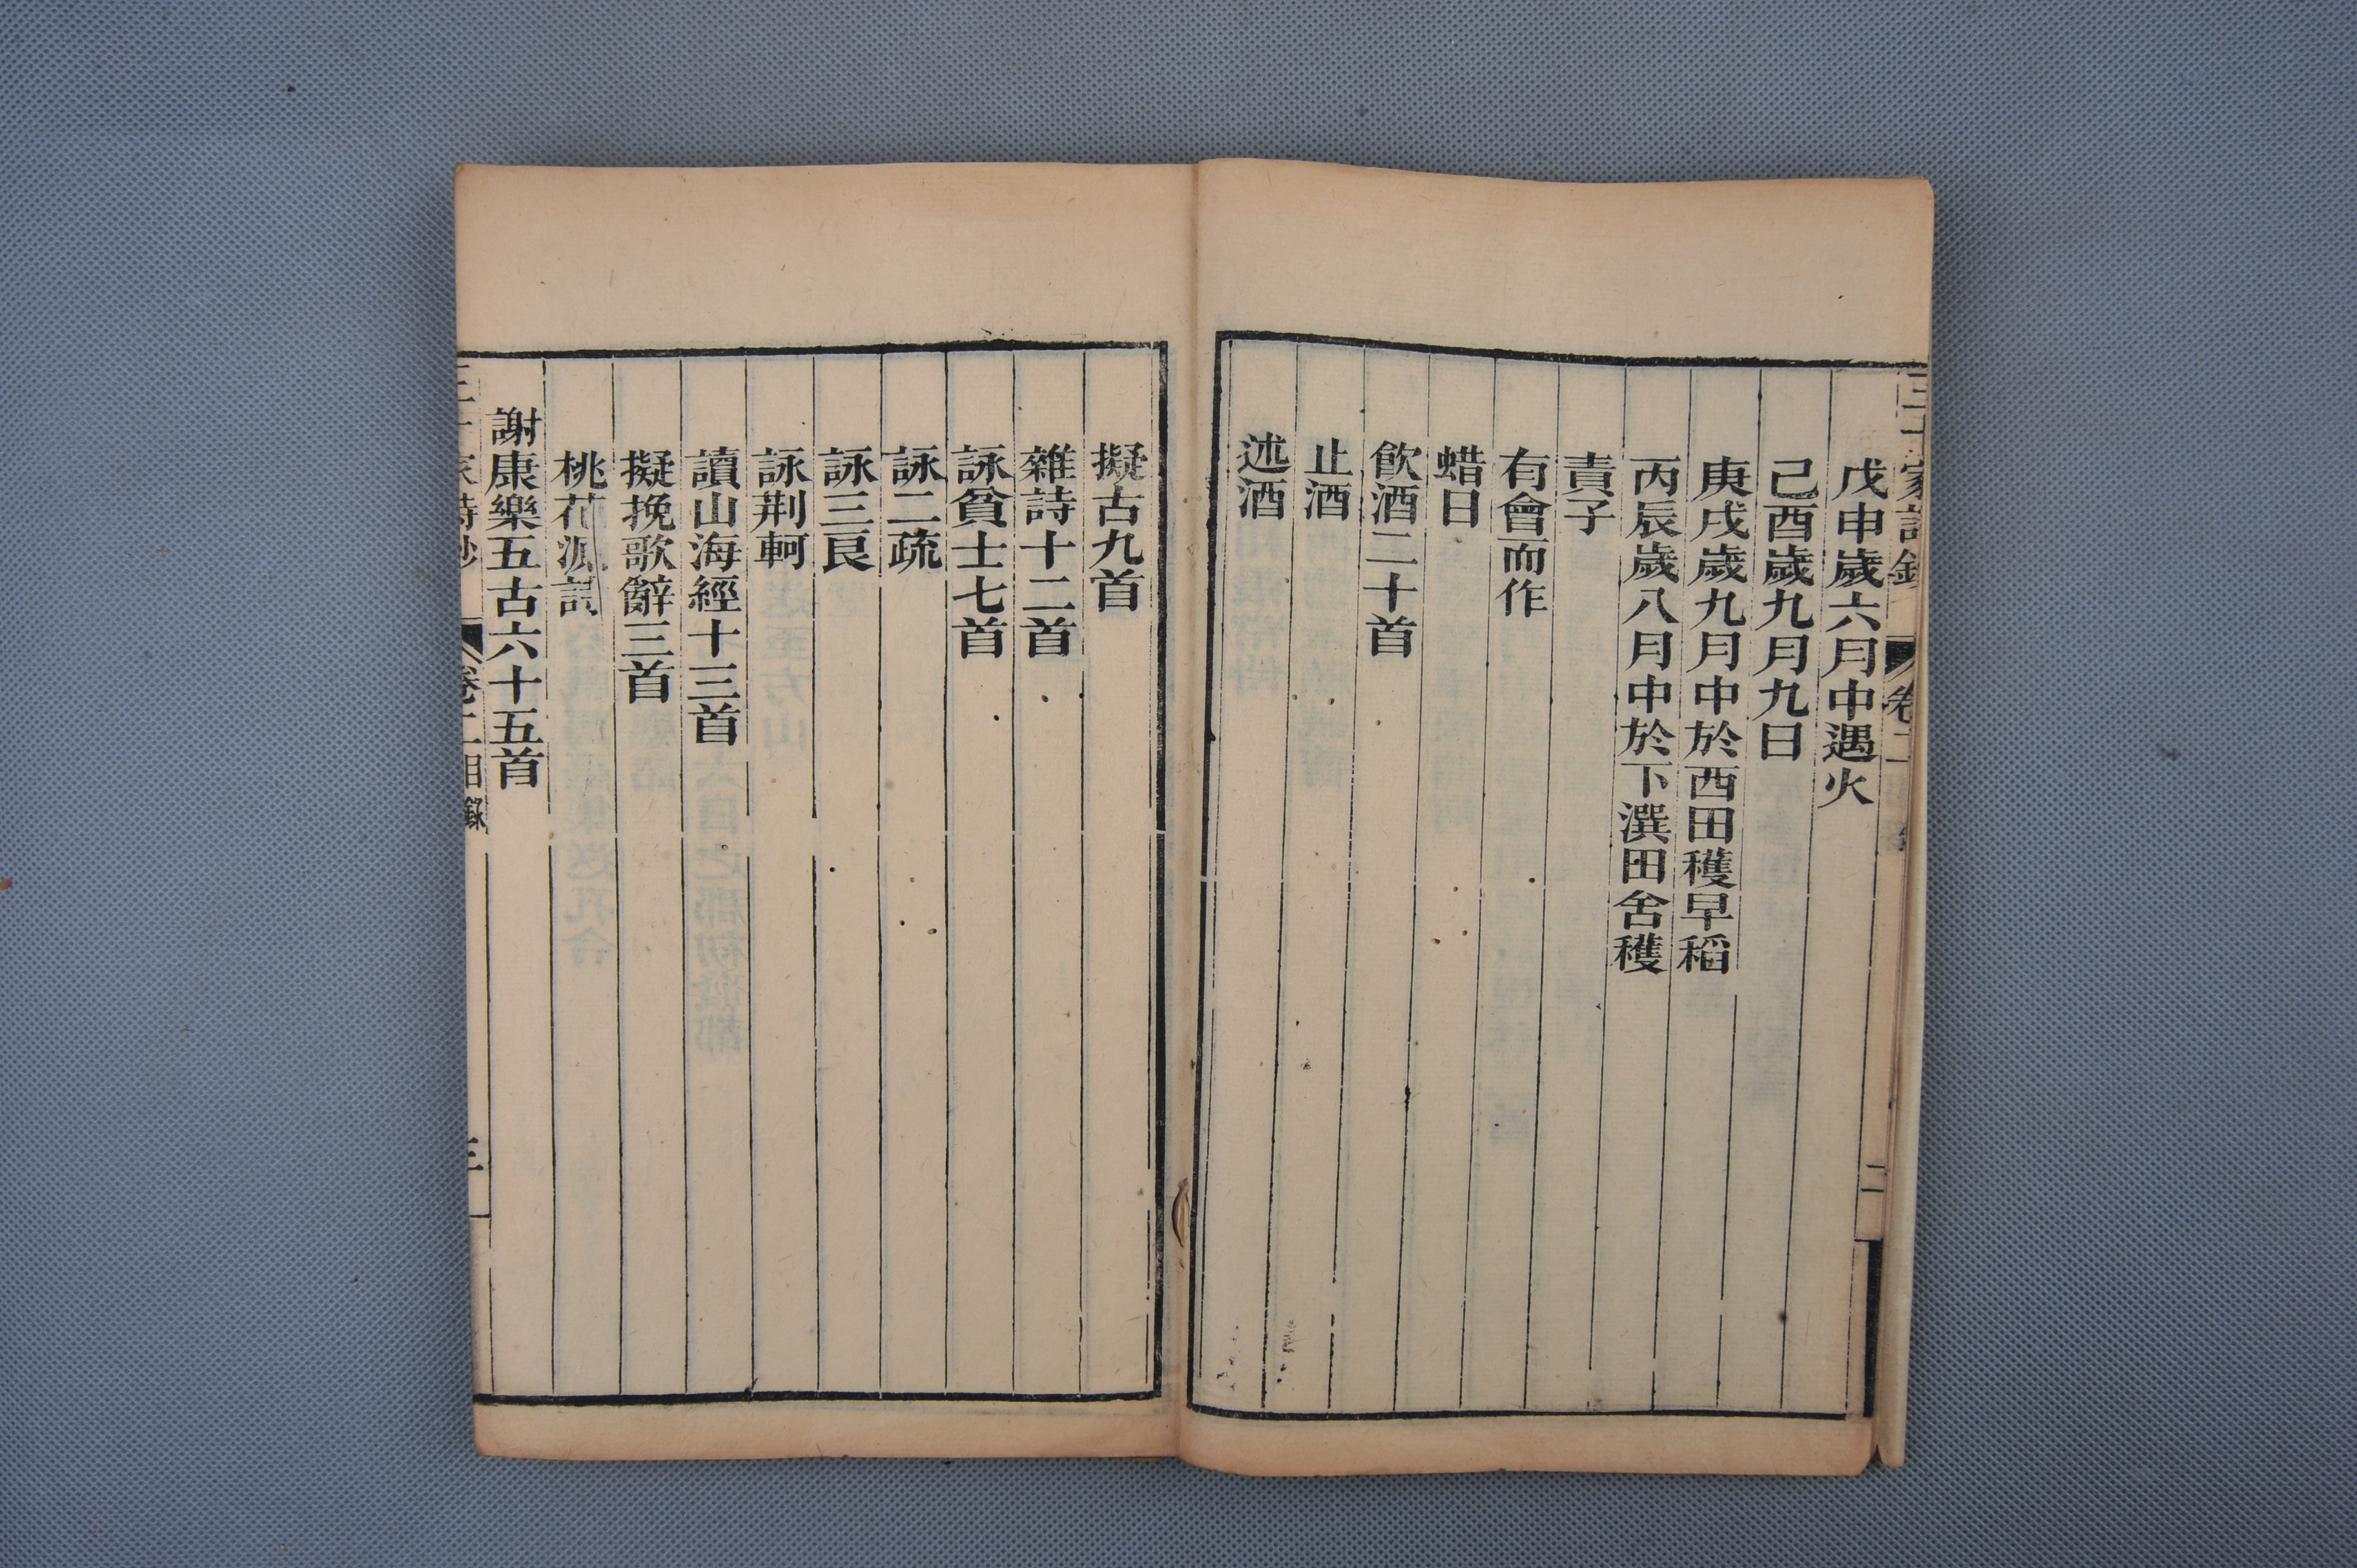 戊申歲六月中遇火
己酉歲九月九日
庚戌歲九月中於西田穫早稻
丙辰歲八月中於下潠田舍穫
責子
有會而作
蜡日
飲酒二十首
止酒
述酒
二
擬古九首
雜詩十二首
詠貧士七首
詠二疏
詠三良
詠荆軻
讀山海經十三首
擬挽歌辭三首
桃花源詩
謝康樂五古六十五首
卷二目錄
三